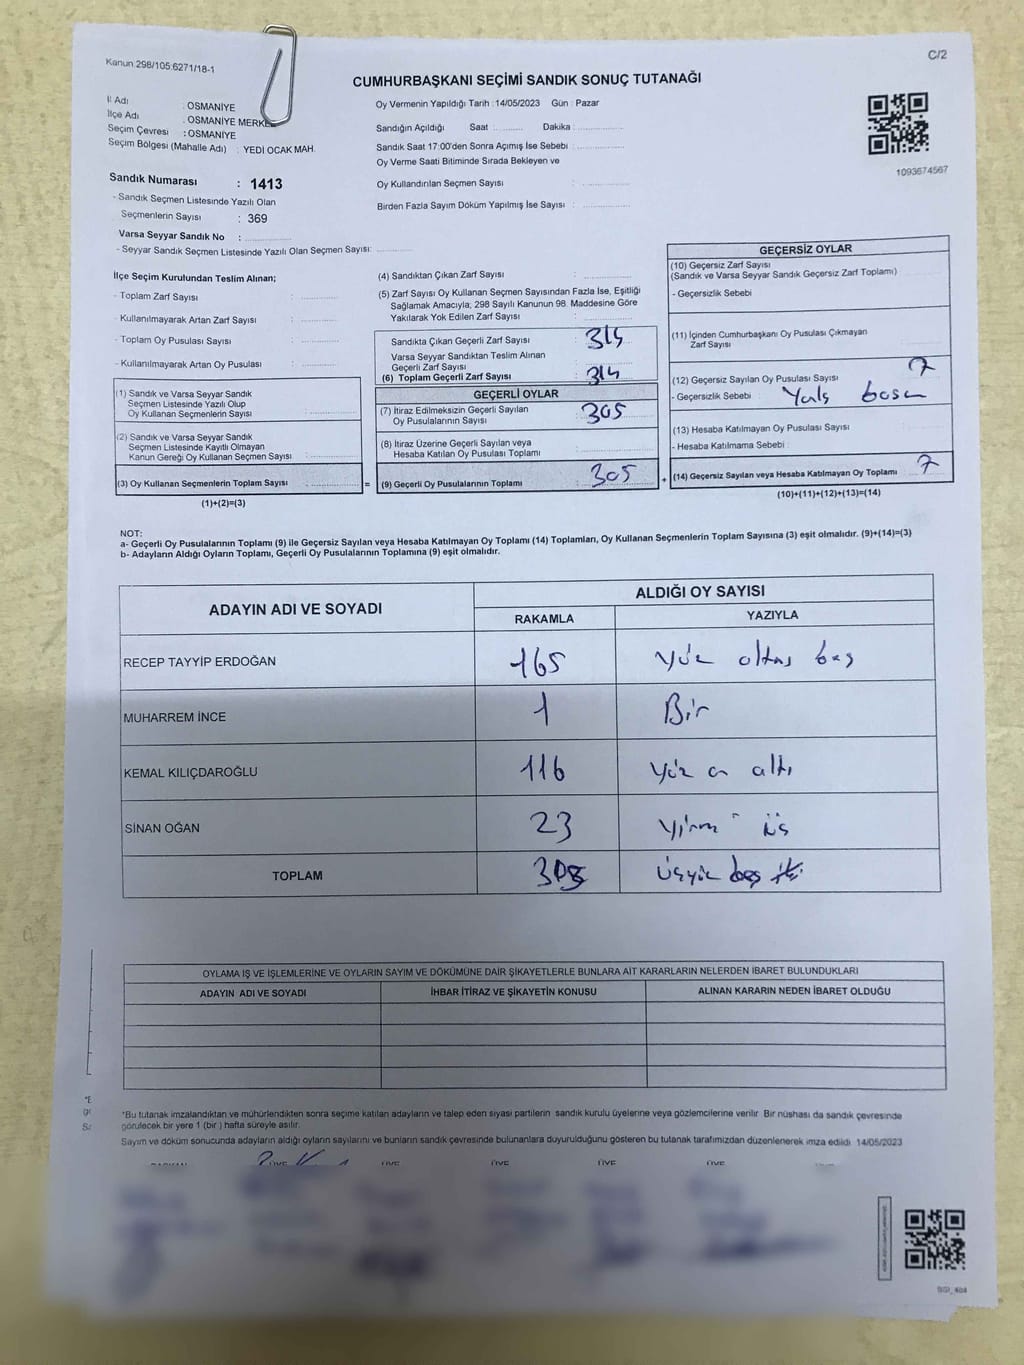 C/2
Kanun 298/105:6271/18-1
CUMHURBAŞKANI SEÇİMİ SANDIK SONUÇ TUTANAĞI
İl Adı : OSMANİYE
İlçe Adı : OSMANİYE MERKEZ
Seçim Çevresi : OSMANİYE
Seçim Bölgesi (Mahalle Adı) : YEDİ OCAK MAH.
Sandık Numarası : 1413
- Sandık Seçmen Listesinde Yazılı Olan
Seçmenlerin Sayısı : 369
Varsa Seyyar Sandık No :
- Seyyar Sandık Seçmen Listesinde Yazılı Olan Seçmen Sayısı:
Oy Vermenin Yapıldığı Tarih :14/05/2023 Gün : Pazar
Sandığın Açıldığı Saat : Dakika :
Sandık Saat 17:00'den Sonra Açımış İse Sebebi :
Oy Verme Saati Bitiminde Sırada Bekleyen ve
Oy Kullandırılan Seçmen Sayısı :
Birden Fazla Sayım Döküm Yapılmış İse Sayısı :
1093674567
İlçe Seçim Kurulundan Teslim Alınan;
- Toplam Zarf Sayısı :
- Kullanılmayarak Artan Zarf Sayısı :
- Toplam Oy Pusulası Sayısı :
- Kullanılmayarak Artan Oy Pusulası :
(1) Sandık ve Varsa Seyyar Sandık
Seçmen Listesinde Yazılı Olup
Oy Kullanan Seçmenlerin Sayısı :
(2) Sandık ve Varsa Seyyar Sandık
Seçmen Listesinde Kayıtlı Olmayan
Kanun Gereği Oy Kullanan Seçmen Sayısı :
(3) Oy Kullanan Seçmenlerin Toplam Sayısı : =
(1)+(2)=(3)
(4) Sandıktan Çıkan Zarf Sayısı :
(5) Zarf Sayısı Oy Kullanan Seçmen Sayısından Fazla İse, Eşitliği
Sağlamak Amacıyla; 298 Sayılı Kanunun 98. Maddesine Göre
Yakılarak Yok Edilen Zarf Sayısı :
Sandıkta Çıkan Geçerli Zarf Sayısı : 314
Varsa Seyyar Sandıktan Teslim Alınan
Geçerli Zarf Sayısı :
(6) Toplam Geçerli Zarf Sayısı : 314
GEÇERLİ OYLAR
(7) İtiraz Edilmeksizin Geçerli Sayılan
Oy Pusulalarının Sayısı : 305
(8) İtiraz Üzerine Geçerli Sayılan veya
Hesaba Katılan Oy Pusulası Toplamı :
(9) Geçerli Oy Pusulalarının Toplamı : 305 +
GEÇERSİZ OYLAR
(10) Geçersiz Zarf Sayısı
(Sandık ve Varsa Seyyar Sandık Geçersiz Zarf Toplamı) :
- Geçersizlik Sebebi
(11) İçinden Cumhurbaşkanı Oy Pusulası Çıkmayan
Zarf Sayısı :
(12) Geçersiz Sayılan Oy Pusulası Sayısı : 7
- Geçersizlik Sebebi :
(13) Hesaba Katılmayan Oy Pusulası Sayısı :
- Hesaba Katılmama Sebebi :
(14) Geçersiz Sayılan veya Hesaba Katılmayan Oy Toplamı : 7
(10)+(11)+(12)+(13)=(14)
NOT:
a- Geçerli Oy Pusulalarının Toplamı (9) ile Geçersiz Sayılan veya Hesaba Katılmayan Oy Toplamı (14) Toplamları, Oy Kullanan Seçmenlerin Toplam Sayısına (3) eşit olmalıdır. (9)+(14)=(3)
b- Adayların Aldığı Oyların Toplamı, Geçerli Oy Pusulalarının Toplamına (9) eşit olmalıdır.
ADAYIN ADI VE SOYADI ALDIĞI OY SAYISI
RAKAMLA YAZIYLA
RECEP TAYYİP ERDOĞAN 165 Yüz altmış beş
MUHARREM İNCE 1 Bir
KEMAL KILIÇDAROĞLU 116 Yüz on altı
SİNAN OĞAN 23 Yirmi üç
TOPLAM 305 Üçyüz beş
OYLAMA İŞ VE İŞLEMLERİNE VE OYLARIN SAYIM VE DÖKÜMÜNE DAİR ŞİKAYETLERLE BUNLARA AİT KARARLARIN NELERDEN İBARET BULUNDUKLARI
ADAYIN ADI VE SOYADI İHBAR İTİRAZ VE ŞİKAYETİN KONUSU ALINAN KARARIN NEDEN İBARET OLDUĞU
*Bu tutanak imzalandıktan ve mühürlendikten sonra seçime katılan adayların ve talep eden siyasi partilerin sandık kurulu üyelerine veya gözlemcilerine verilir. Bir nüshası da sandık çevresinde
görülecek bir yere 1 (bir ) hafta süreyle asılır.
Sayım ve döküm sonucunda adayların aldığı oyların sayılarını ve bunların sandık çevresinde bulunanlara duyurulduğunu gösteren bu tutanak tarafımızdan düzenlenerek imza edildi. 14/05/2023
BAŞKAN ÜYE ÜYE ÜYE ÜYE ÜYE